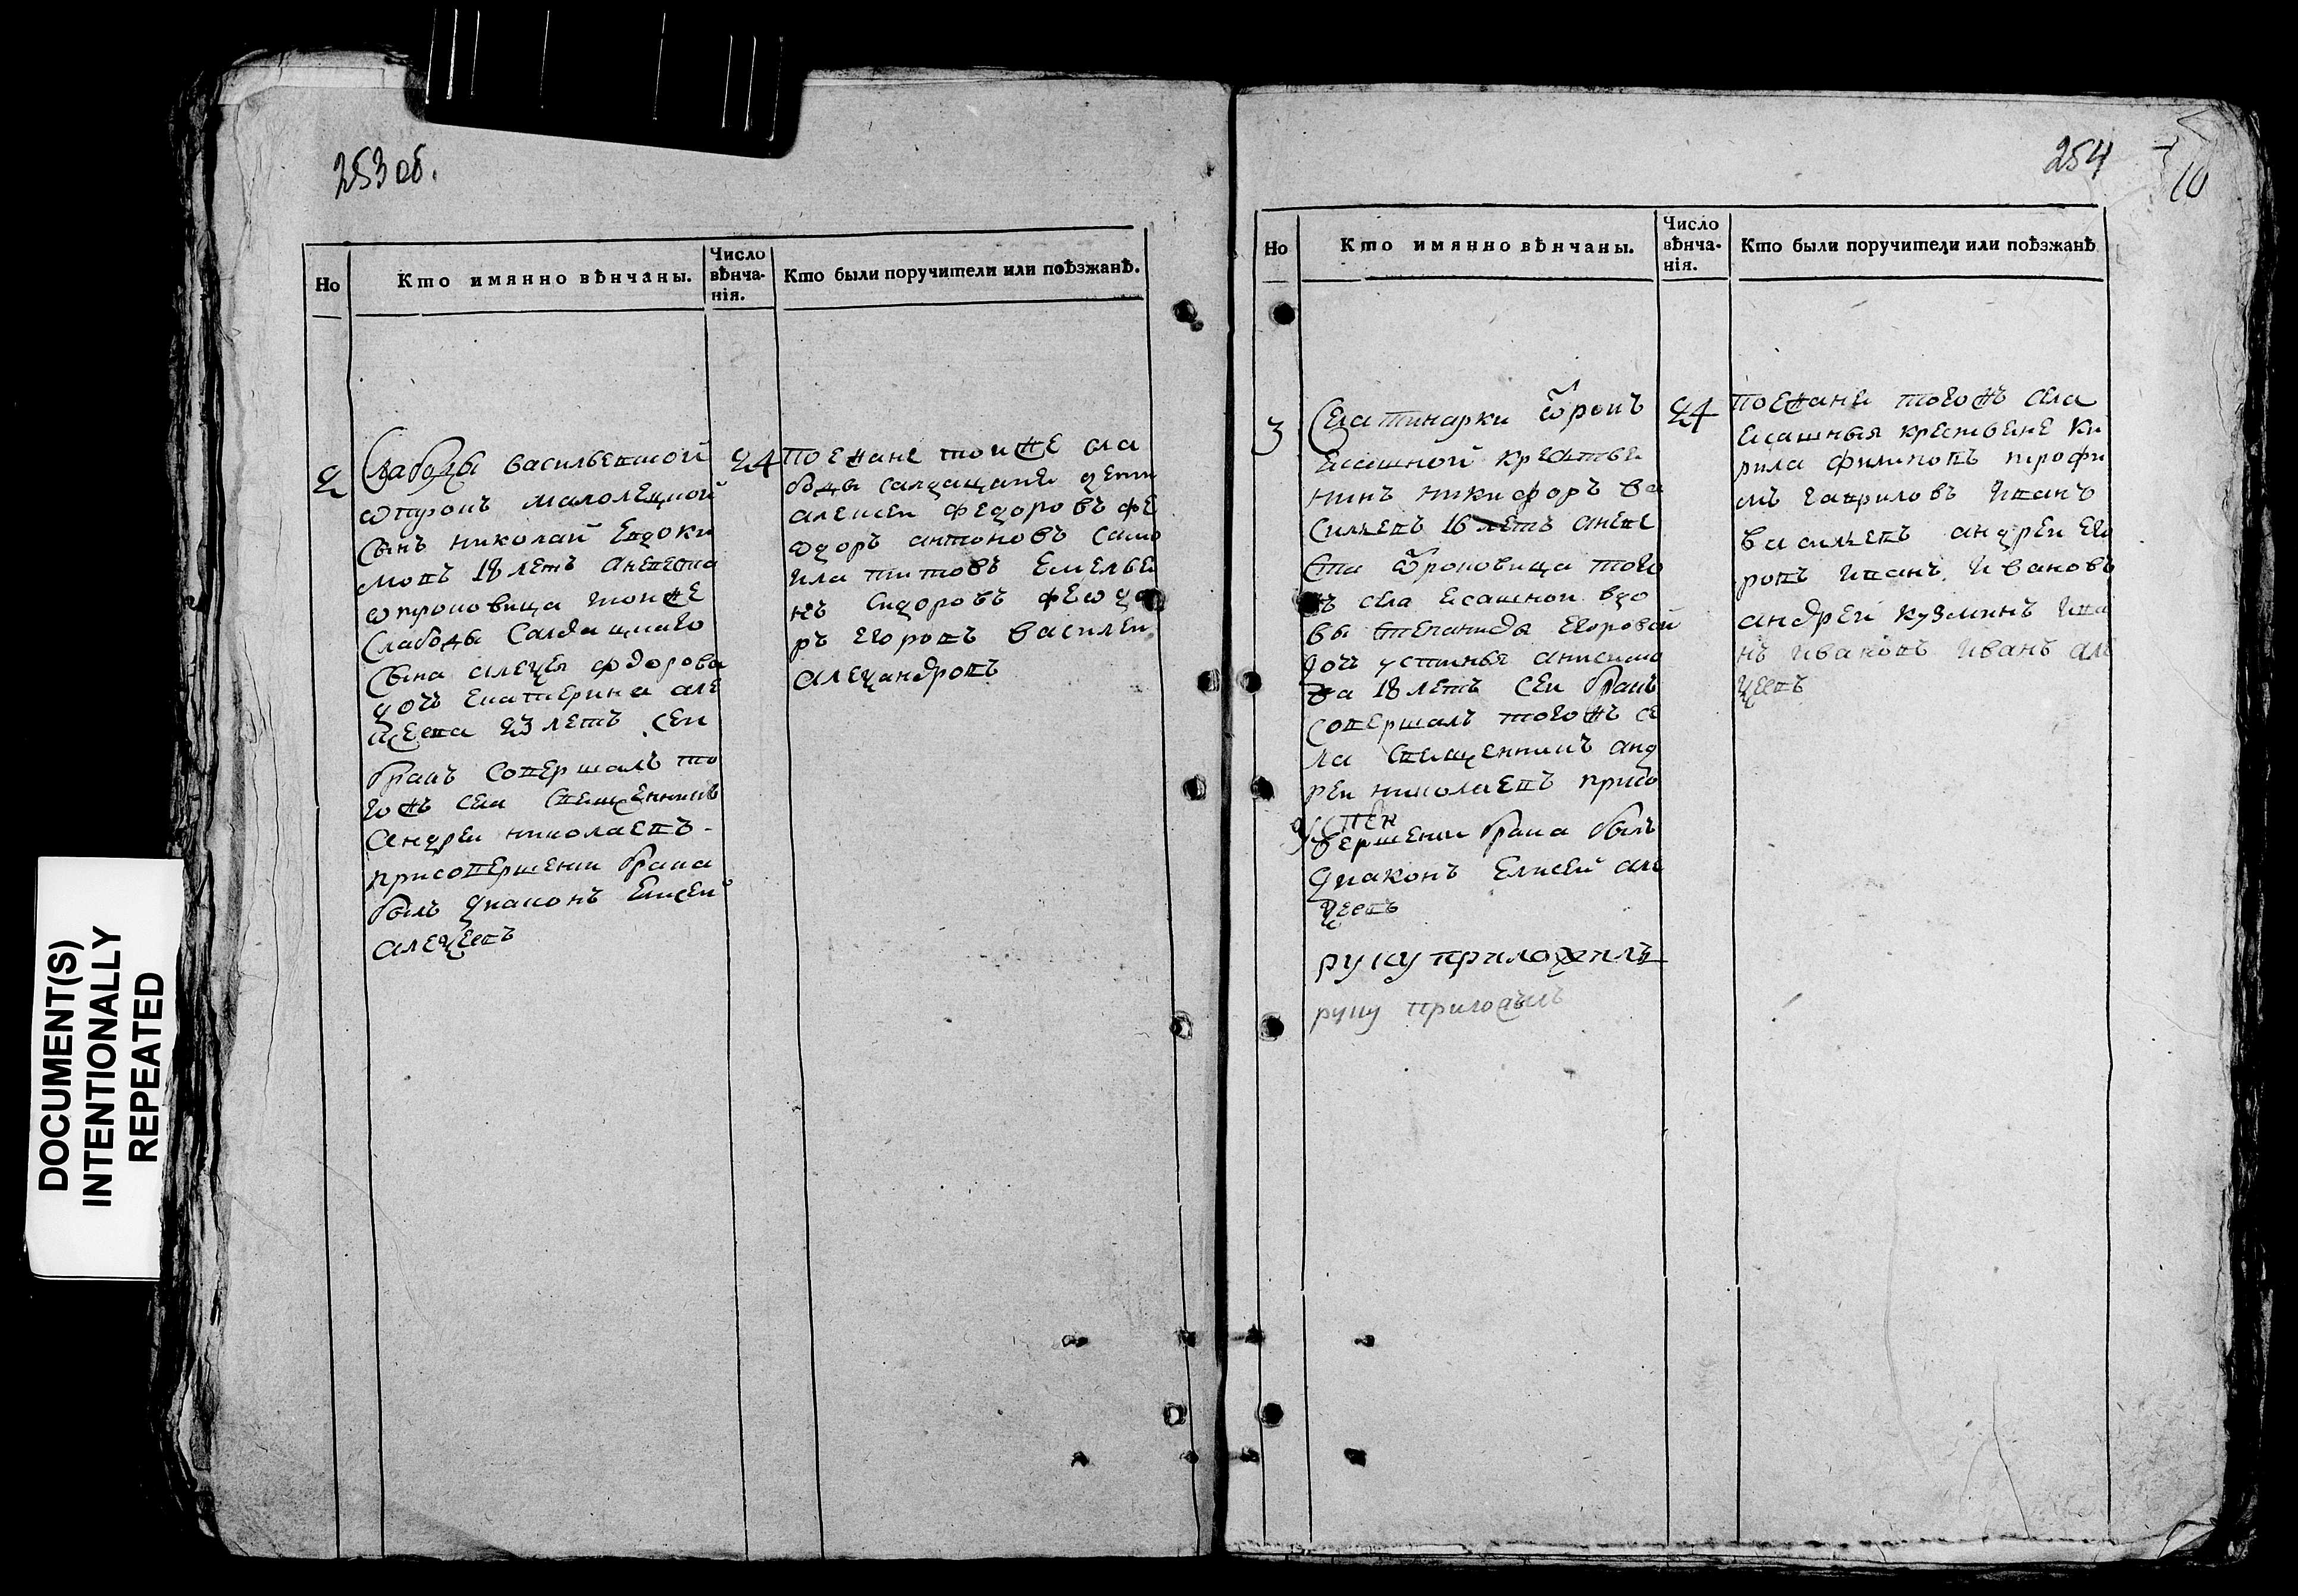 253 об.
Но
Кто имянно вѣнчаны.
Число вѣнчанія.
Кто были поручители или поѣзжанѣ.
2
Слабоды васильевской
ѡтрокъ малолецкой
сынъ николай Евдоки
мовъ 18 летъ аневеста
ѡтроковица тоиже
Слабоды Салдацкаго
сына алеѯея фѡдорова
дочь екатерина але
ѯеева 23 летъ сеи
бракъ совершалъ то
гожъ села священникъ
андреи николаевъ
присовершении брака
былъ диаконъ Елисеи
алеѯеевъ
24
поежане тоиже сла
боды салдацкие дети
алексеи федоровъ фе
ѡдоръ антоновъ само
ила титовъ Емелъе
нъ Сидоровъ феѡдо
ръ егоровъ василеи
алеѯандровъ
DOCUMENT(S)
INTENTIONALLY
REPEATED
254
10
Но
Кто имянно вѣнчаны.
Число вѣнчанія.
Кто были поручители или поѣзжанѣ
3
Села тинарки ѿрокъ
ясашной крестья
нинъ никифоръ ва
сильевъ 16 летъ аневе
ста ѿроковица того
жъ села ясашнои вдо
вы степаниды егоровой
дочь устинья анисимо
ва 18 летъ сеи бракъ
совершалъ тогожъ се
ла священникъ анд
реи николаевъ присо
вершении брака былъ
диаконъ Елисей але
ѯеевъ
руку приложилъ
руку приложилъ
24
поежани тогожъ села
ясашныя крестьяне ки
рила филиповъ трофи
мъ гавриловъ иванъ
васильевъ андреи его
ровъ иванъ ивановъ
андрей кузминъ ива
нъ ивановъ иванъ але
ѯеевъ